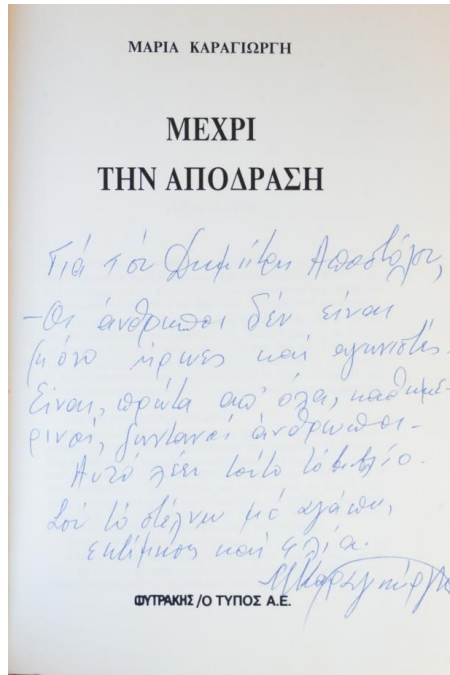 ΜΑΡΙΑ ΚΑΡΑΓΙΩΡΓΗ
ΜΕΧΡΙ
ΤΗΝ ΑΠΟΔΡΑΣΗ
Γιά τόν Δημήτρη Αποστόλου,
- Οι άνθρωποι δέν είναι
μόνο ήρωες καί αγωνιστές.
Είναι, πρώτα απ' όλα, καθημε-
ρινοί, ζωντανοί άνθρωποι -
Αυτό λέει τούτο τό βιβλίο.
Σού τό στέλνω μέ αγάπη,
εκτίμηση καί φιλία.
ΜΚαραγιώργη
ΦΥΤΡΑΚΗΣ/Ο ΤΥΠΟΣ Α.Ε.